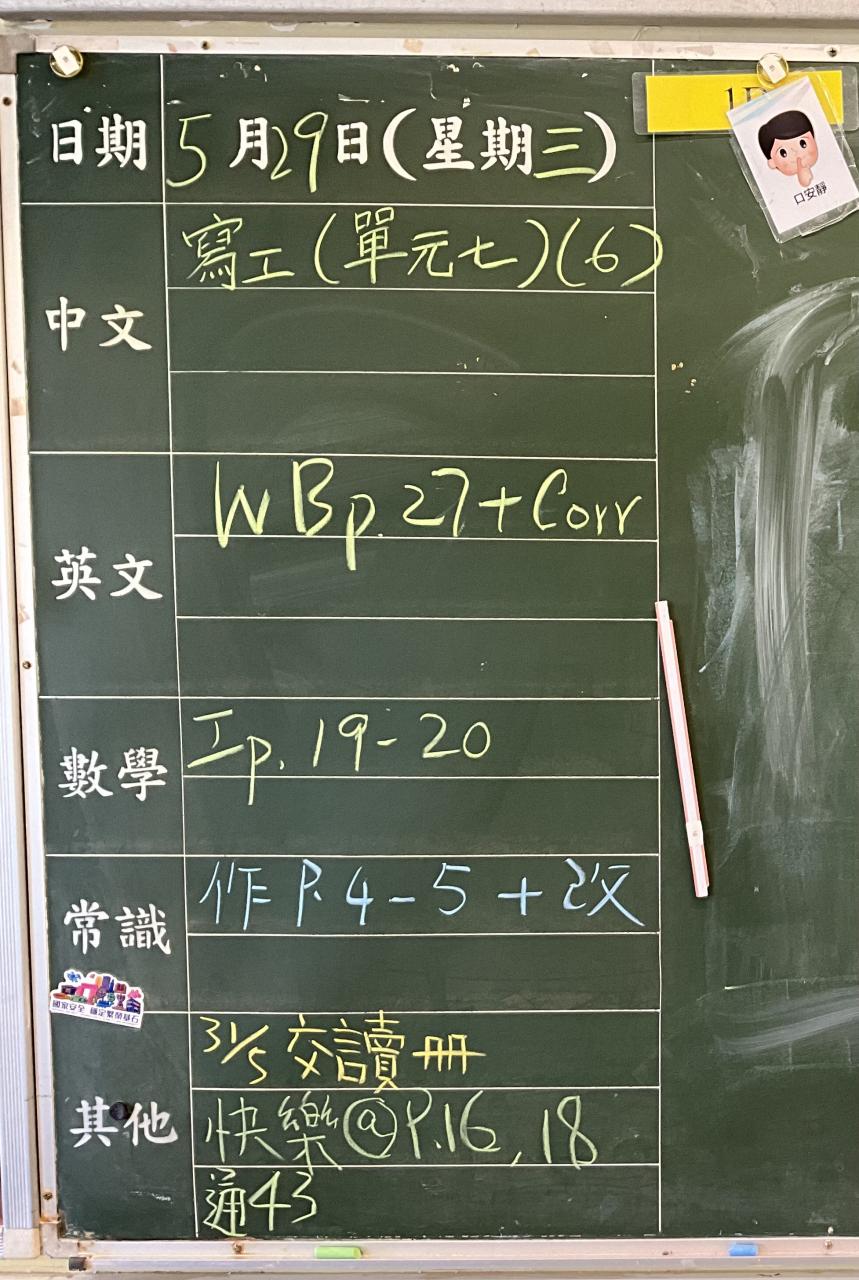 日期 5月29日(星期三)
1
口安靜
中文 寫工(單元七)(6)
英文 WBp.27+Corr
數學 工p.19-20
常識 作P.4-5+改
國家安全 穩定繁榮基石
其他 31/5 交讀冊
快樂@P.16,18
通43